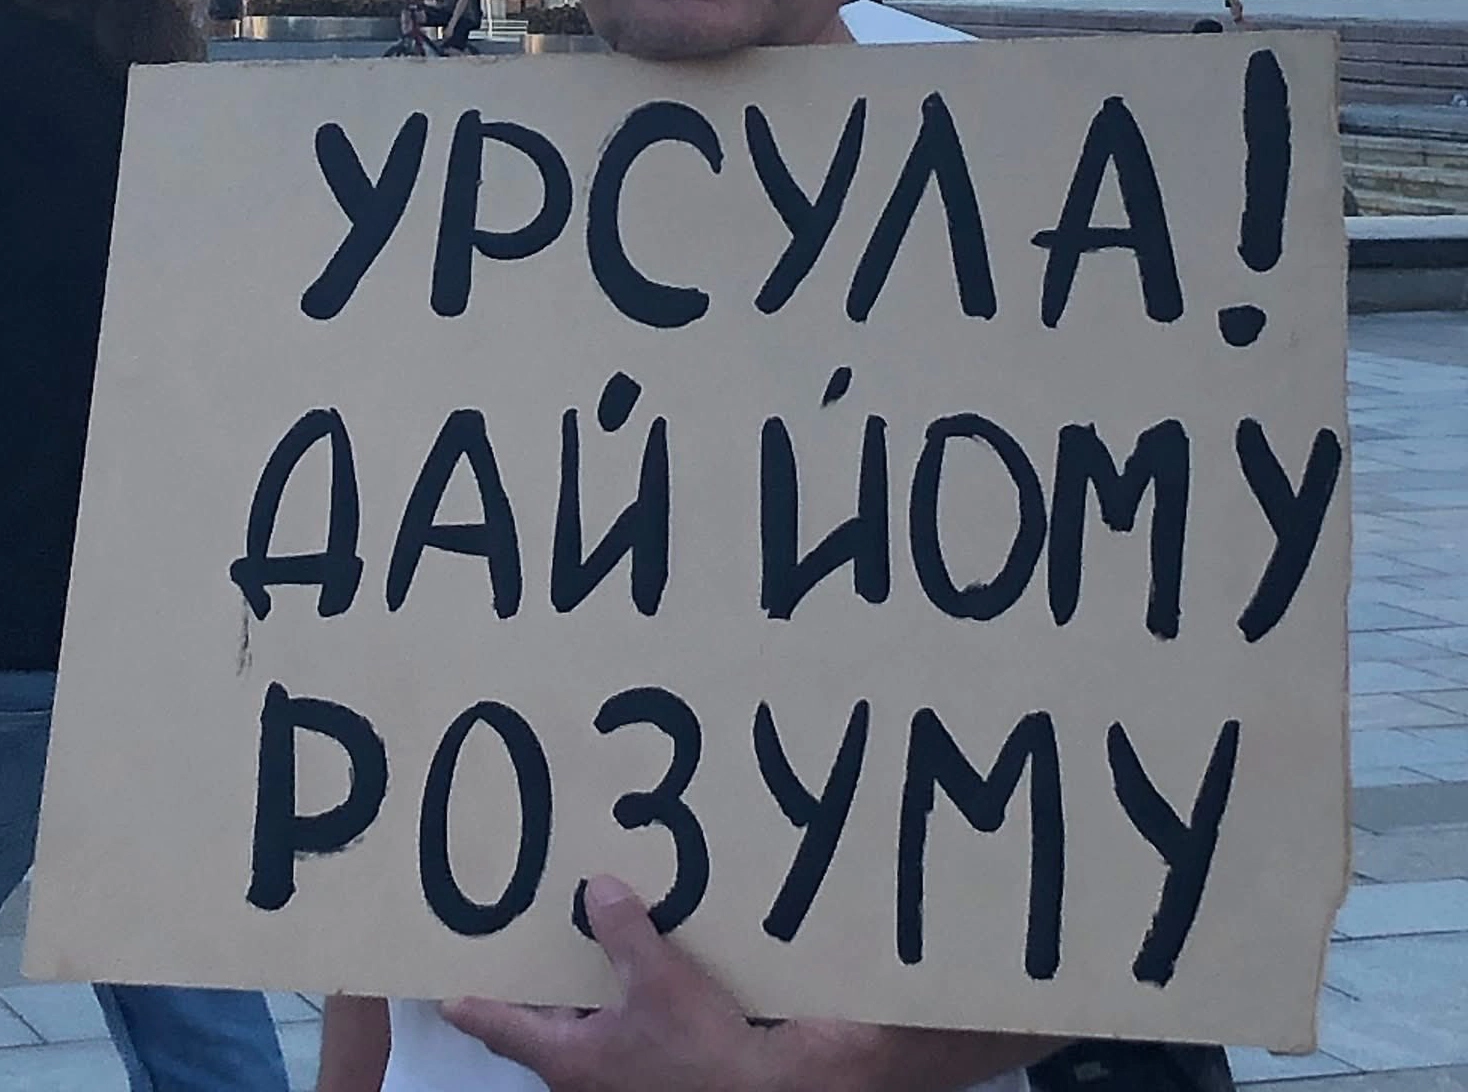 УРСУЛА!
ДАЙ ЙОМУ
РОЗУМУ